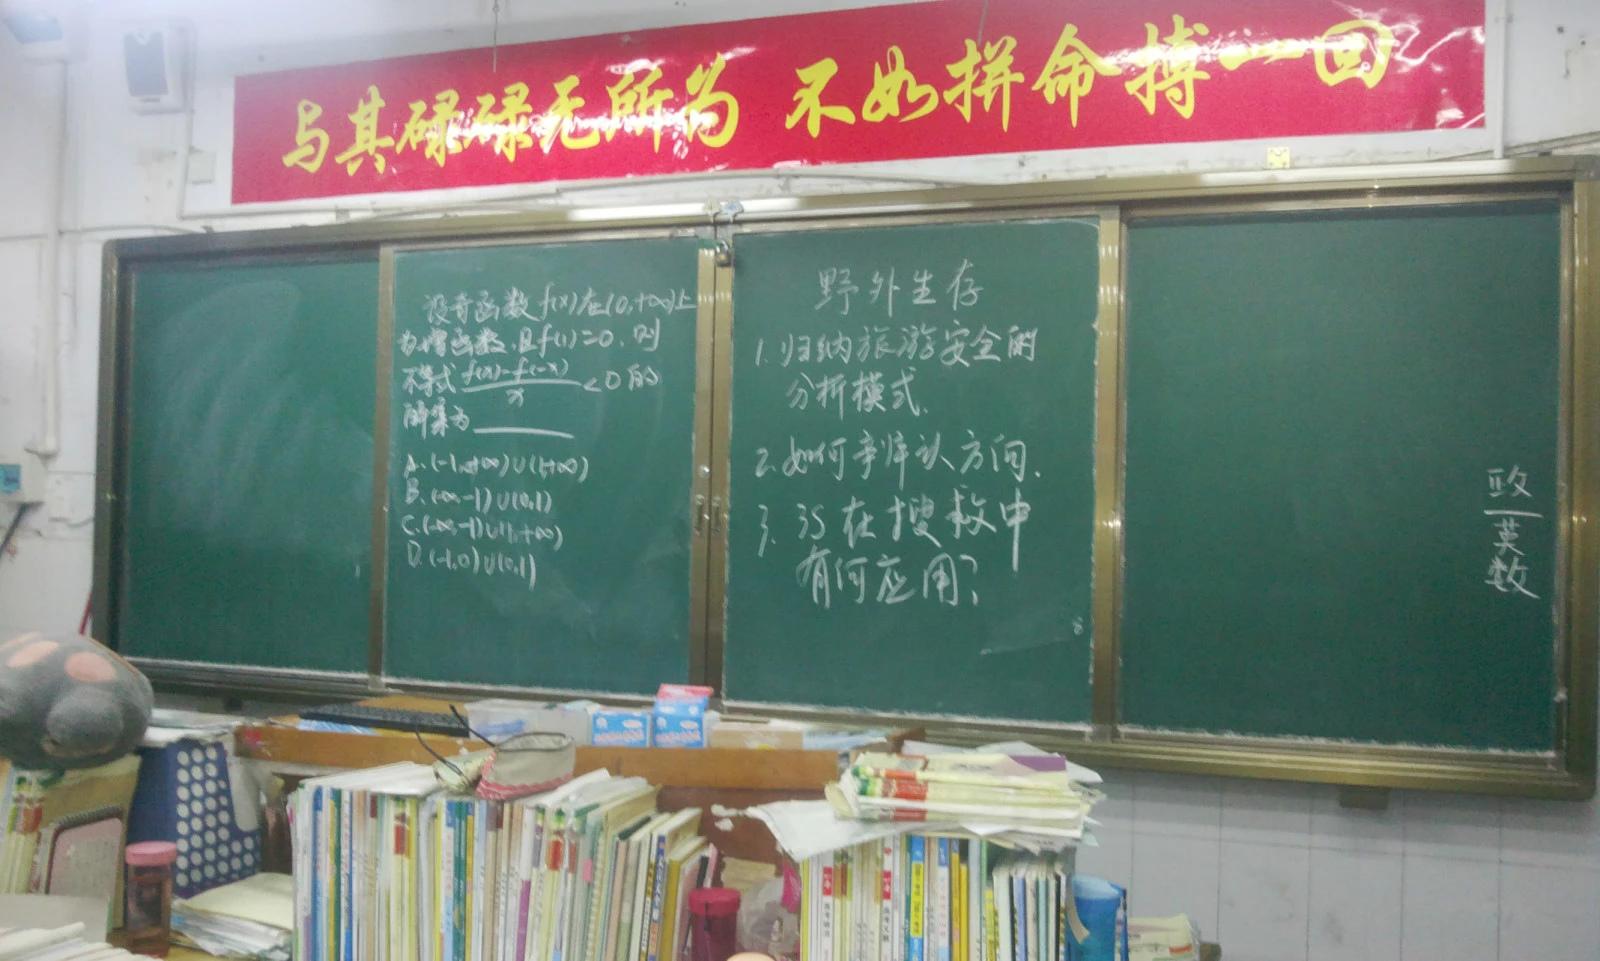 与其碌碌无所为 不如拼命搏一回
设奇函数f(x)在(0,+∞)上
为增函数,且f(1)=0,则
不等式 f(x)-f(-x)/x <0的
解集为______
A.(-1,+∞)∪(1,+∞)
B.(-∞,-1)∪(0,1)
C.(-∞,-1)∪(1,+∞)
D.(-1,0)∪(0,1)
野外生存
1.归纳旅游安全的
分析模式.
2.如何辨认方向.
3.3S在搜救中
有何应用?
政
英
数